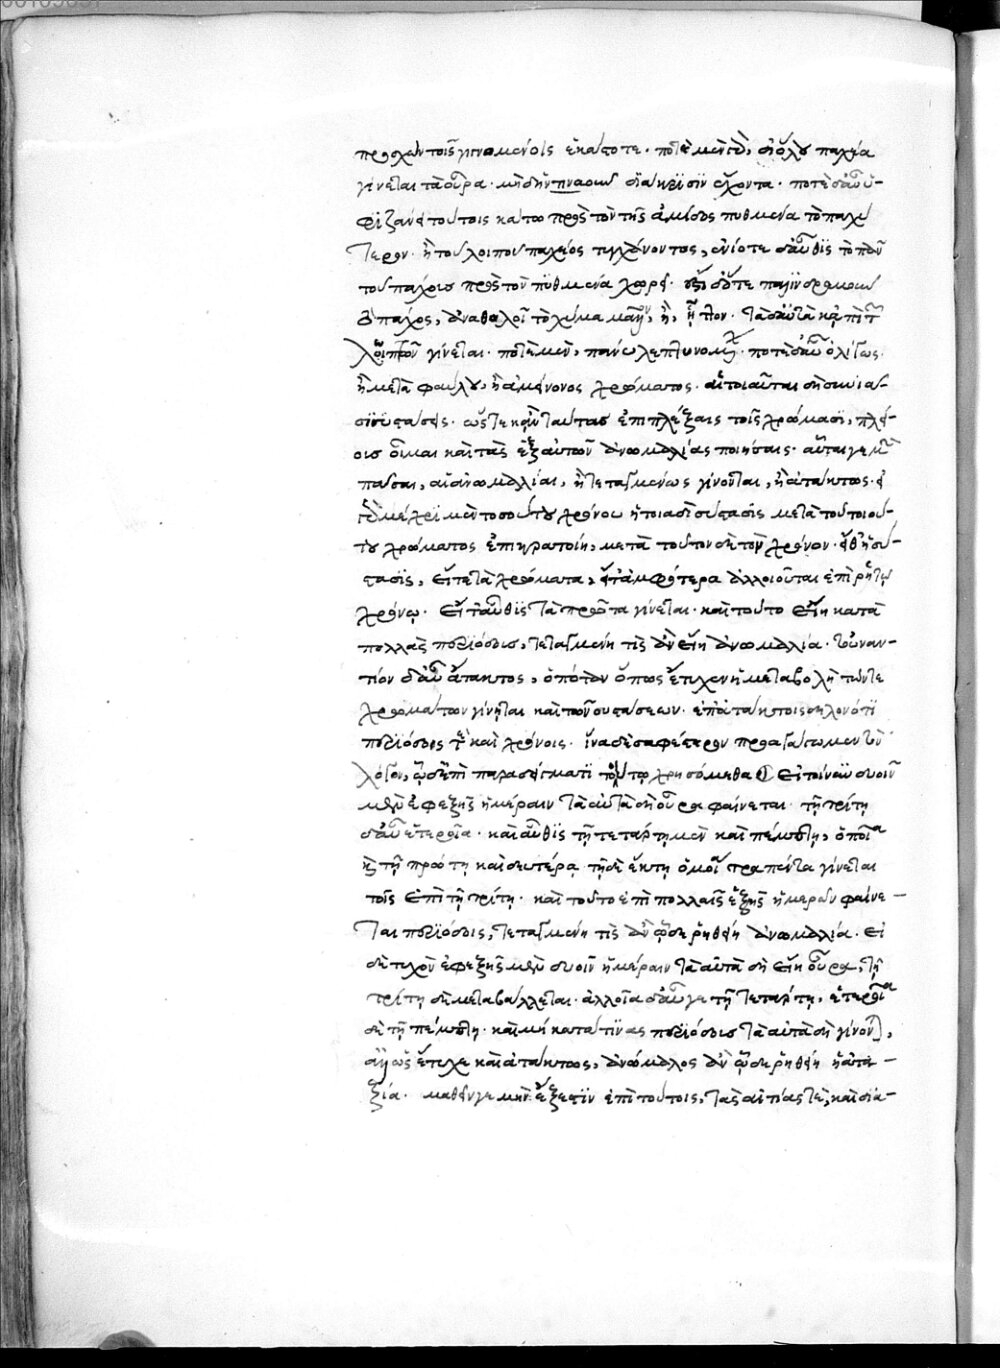 προσχὼν τοῖς γινομένοις ἑκάστοτε. ποτὲ μὲν γὰρ, δι' ὅλου παχέα
γίνεται τὰ οὖρα. μηδὲν πνεῦμα διάκρισιν ἔχοντα. ποτὲ δ' αὖ ὑ-
φιζάνει τούτοις κάτω πρὸς τὸν τῆς ἀμίδος πυθμένα τὸ παχύ
τερον. ἢ τοῦ λοιποῦ παχέος τυγχάνοντος, ἐνίοτε δ' αὖθις τὸ πᾶν
τοῦ πάχους πρὸς τὸν πυθμένα χωρεῖ.
ὁ πάχος, ἀναθολοῖ τὸ χύμα μᾶλλον, ἢ, ἧττον. τὰ δ' αὐτὰ κἀπὶ τῶν
λοιπῶν γίνεται. ποτὲ μὲν, πάνυ λεπτυνομένων. ποτὲ δ' αὖ ὀλίγως.
ἢ μετὰ φαύλου, ἢ ἀμείνονος χρώματος. αἱ τοιαῦται δὴ συνια-
σι συστάσεις. ὥστε κἂν ταύτας ἐπιπλέξαις τοῖς χρώμασι, πλεί-
οις οἶμαι καὶ τὰς ἐξ αὐτῶν ἀνωμαλίας ποιήσαις. αὗται γε μὴν
πᾶσαι, αἱ ἀνωμαλίαι, ἢ τεταγμένως γίνονται, ἢ ἀτάκτως. εἰ
γὰρ μέχρι μὲν τοσούτου χρόνου ἡ τοιάδε σύστασις μετὰ τοῦ τοιού-
του χρώματος ἐπικρατοίη, μετὰ τοῦτον δὲ τὸν χρόνον. εἴθ' ἡ σύ-
στασις, εἴτε τὰ χρώματα, εἴτ' ἀμφότερα ἀλλοιοῦται ἐπὶ ῥητῷ
χρόνῳ. εἶτ' αὖθις τὰ πρῶτα γίνεται. καὶ τοῦτο εἴη κατὰ
πολλὰς περιόδους, τεταγμένη τις ἂν εἴη ἀνωμαλία. τοὐναν-
τίον δ' αὖ ἄτακτος, ὁπόταν ὅπως ἔτυχεν ἡ μεταβολὴ τῶν τε
χρωμάτων γίνηται καὶ τῶν συστάσεων. ἐπ' ἀτάκτοις δηλονότι
περιόδοις τε καὶ χρόνοις. ἵνα δὲ σαφέστερον προαγάγωμεν τὸν
λόγον, ὡς ἐπὶ παραδείγματι τούτῳ χρησόμεθα εἰ τοίνυν δυοῖν
μὲν ἐφεξῆς ἡμέραιν τὰ αὐτὰ δὴ οὖρα φαίνεται. τῇ τρίτῃ
δ' αὖ ἑτεροῖα. καὶ αὖθις τῇ τετάρτῃ μὲν καὶ πέμπτῃ, ὁποῖα
ἐν τῇ πρώτῃ καὶ δευτέρᾳ. τῇ δὲ ἕκτῃ ὁμοῖα τὰ πάντα γίνεται
τοῖς ἐπὶ τῇ τρίτῃ. καὶ τοῦτο ἐπὶ πολλαῖς ἑξῆς ἡμερῶν φαίνε-
ται περιόδοις, τεταγμένη τις ἂν ὧδε ῥηθείη ἀνωμαλία. εἰ
δὲ τυχὸν ἐφεξῆς μὲν δυοῖν ἡμέραιν τὰ αὐτὰ δὴ εἴη οὖρα, τῇ
τρίτῃ δὲ μεταβάλλεται. ἀλλοῖα δ' αὖ γε τῇ τετάρτῃ, ἑτεροῖα
δὲ τῇ πέμπτῃ. καὶ μὴ κατά τινας περιόδους τὰ αὐτὰ δὴ γίνονται,
ἀλλ' ὡς ἔτυχε καὶ ἀτάκτως, ἀνώμαλος ἂν ὧδε ῥηθείη ἡ ἀτα-
ξία. μαθεῖν γε μὴν ἔξεστιν ἐπὶ τούτοις, τὰς αἰτίας τὲ, καὶ δια-